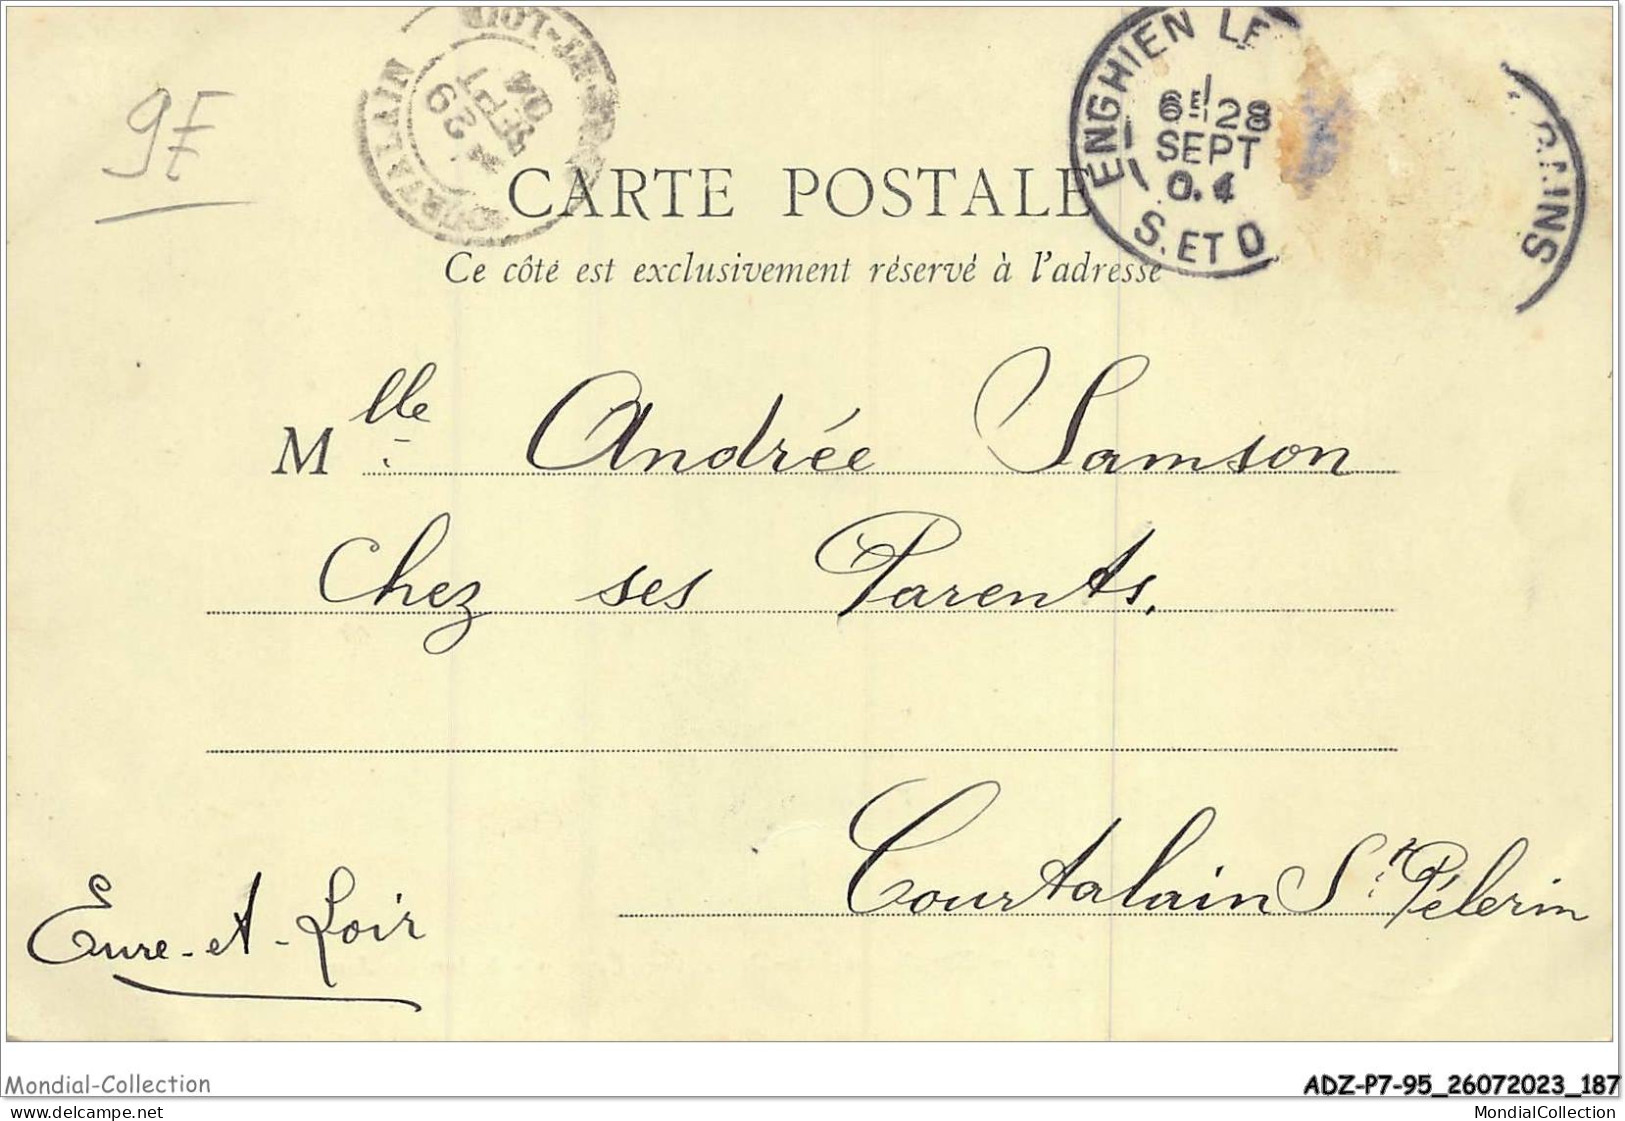 9F
COURTALAIN
29
SEPT
04
ET-LOIR
ENGHIEN LE
6E 28
SEPT
04
S. ET O
BAINS
CARTE POSTALE
Ce côté est exclusivement réservé à l'adresse
Mlle Andrée Samson
Chez ses Parents.
Courtalain St Pélerin
Eure-et-Loir
Mondial-Collection
ADZ-P7-95_26072023_187
delcampe.net
MondialCollection